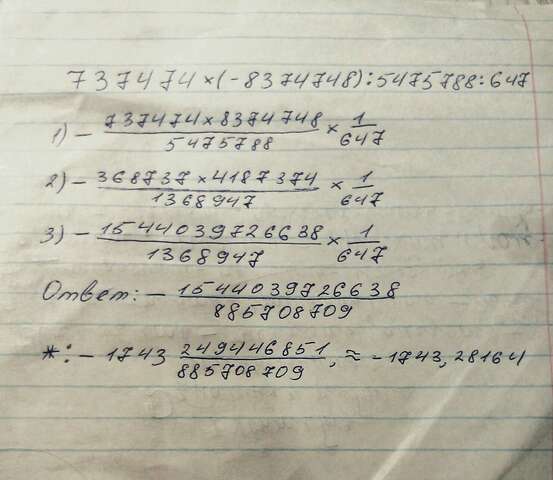 737474×(-8374748):5475788:647
1) - 737474×8374748/5475788 × 1/647
2) - 368737×4187374/1368947 × 1/647
3) - 1544039726638/1368947 × 1/647
Ответ: - 1544039726638/885708709
*: - 1743 249446851/885708709, ≈ -1743,28164